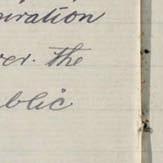 piration
ver. the
ublic